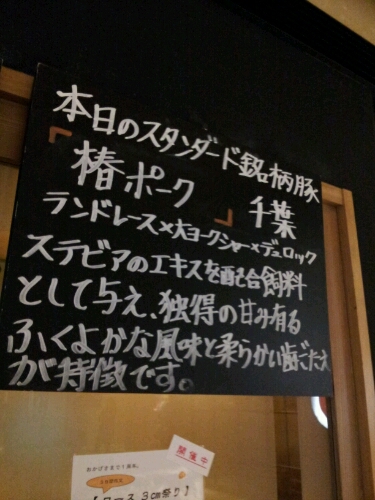 本日のスタンダード銘柄豚
「椿ポーク」千葉
ランドレース×大ヨークシャー×デュロック
ステビアのエキスを配合飼料
として与え、独得の甘み有る
ふくよかな風味と柔らかい歯ごたえ
が特徴です。
おかげさまで1周年。
開催中
【ロース3cm祭り】